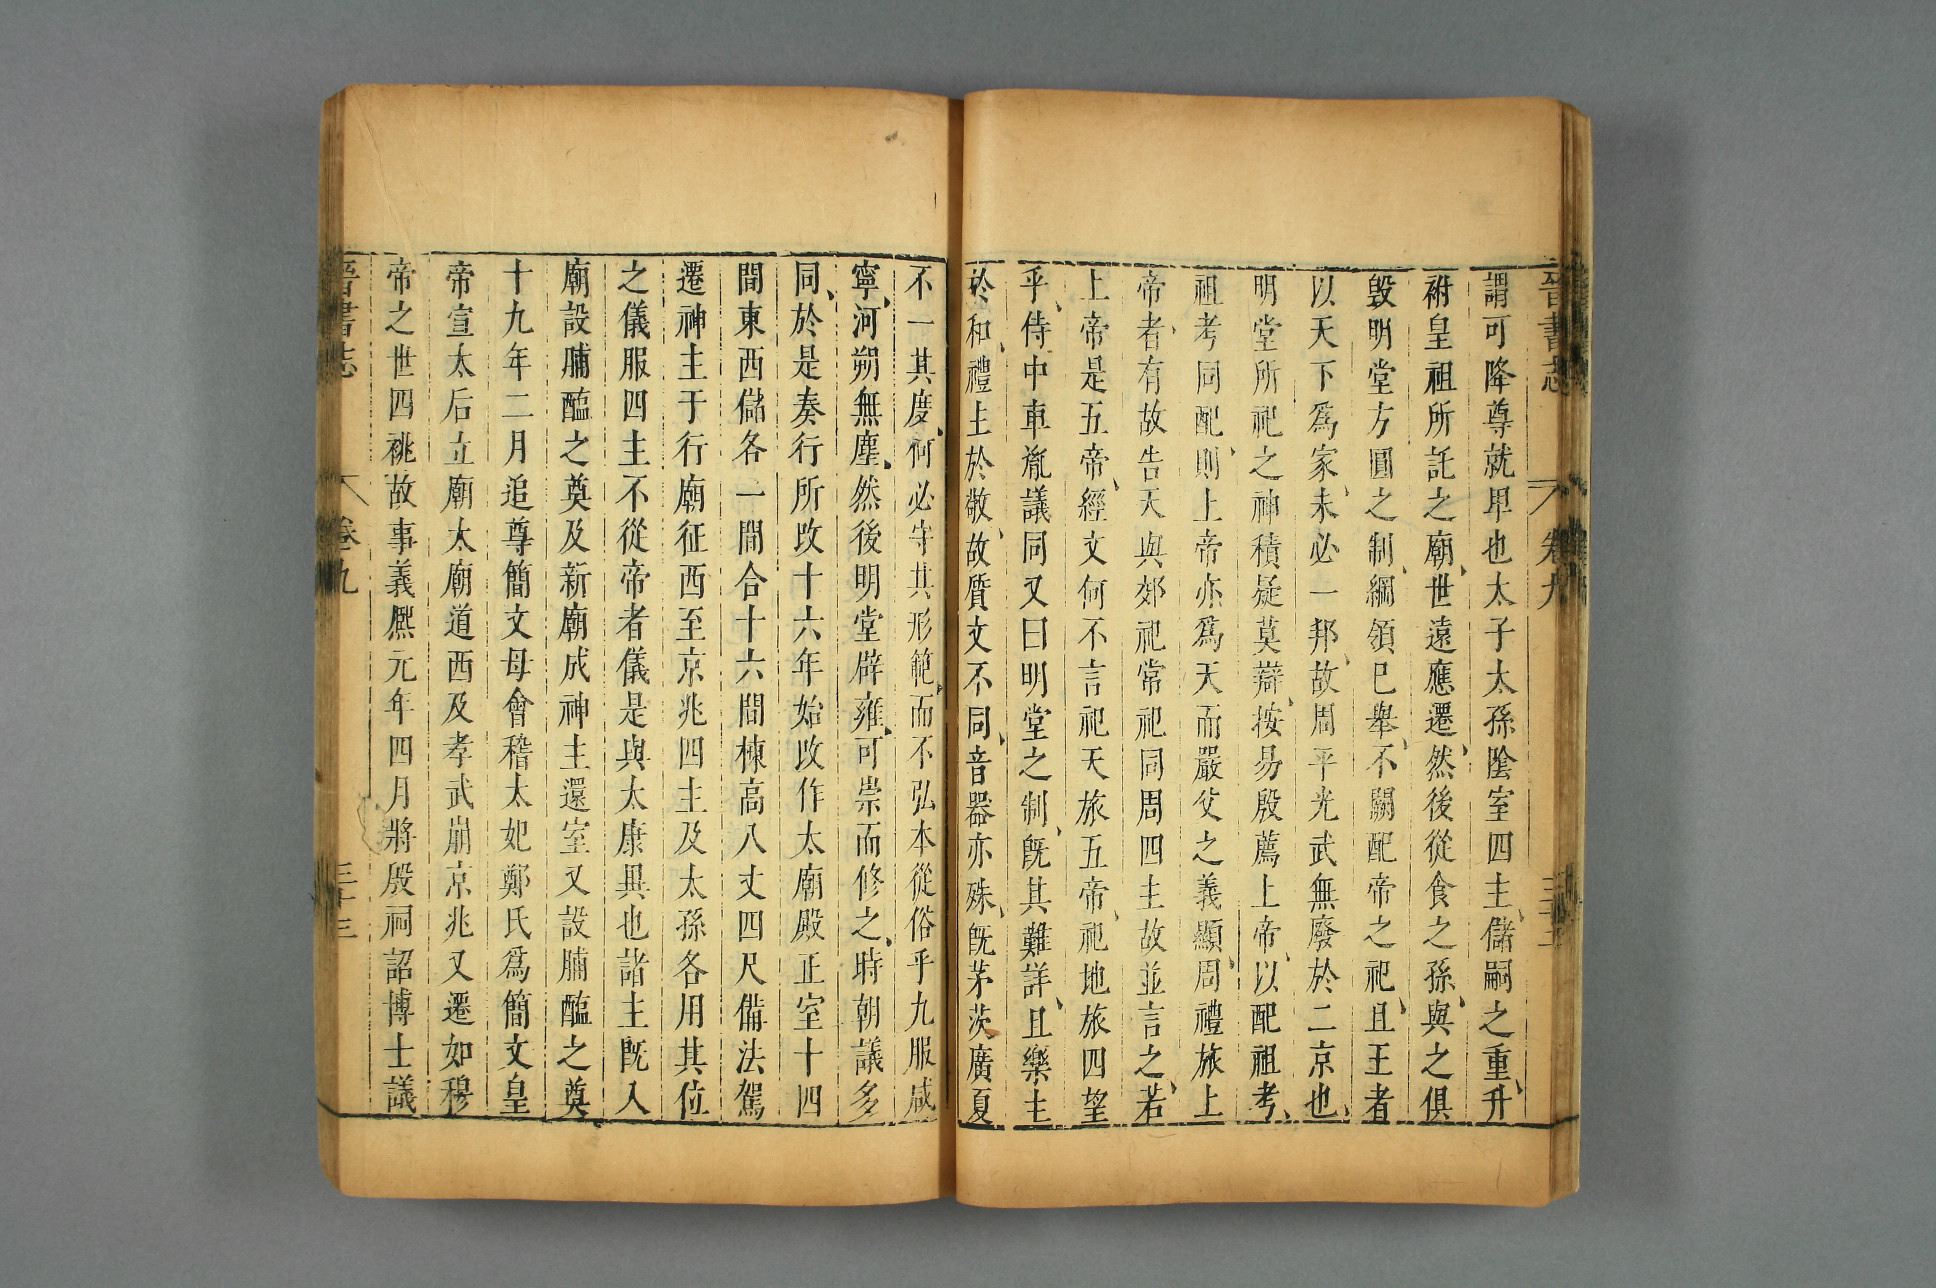 晉書志 卷九
謂可降尊就卑也太子太孫陰室四主儲嗣之重升
祔皇祖所託之廟世遠應遷然後從食之孫與之俱
毀明堂方圓之制綱領已舉不關配帝之祀且王者
以天下爲家未必一邦故周平光武無廢於二京也
明堂所祀之神積疑莫辯按易殷薦上帝以配祖考
祖考同配則上帝亦爲天而嚴父之義顯周禮旅上
帝者有故告天與郊祀常祀同周四主故並言之若
上帝是五帝經文何不言祀天旅五帝祀地旅四望
乎侍中車胤議同又曰明堂之制旣其難詳且樂主
於和禮主於敬故質文不同音器亦殊旣茅茨廣夏
不一其度何必守其形範而不弘本從俗乎九服咸
寧河朔無塵然後明堂辟雍可崇而修之時朝議多
同於是奏行所改十六年始改作太廟殿正室十四
間東西儲各一間合十六間棟高八丈四尺備法駕
遷神主于行廟征西至京兆四主及太孫各用其位
之儀服四主不從帝者儀是與太康異也諸主旣入
廟設脯醢之奠及新廟成神主還室又設脯醢之奠
十九年二月追尊簡文母會稽太妃鄭氏爲簡文皇
帝宣太后立廟太廟道西及孝武崩京兆又遷如穆
帝之世四祧故事義熙元年四月將殷祠詔博士議
晉書志 卷九 三十三